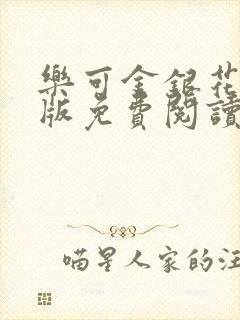 樂可金銀花
版免費閱讀
喵星人家的汪